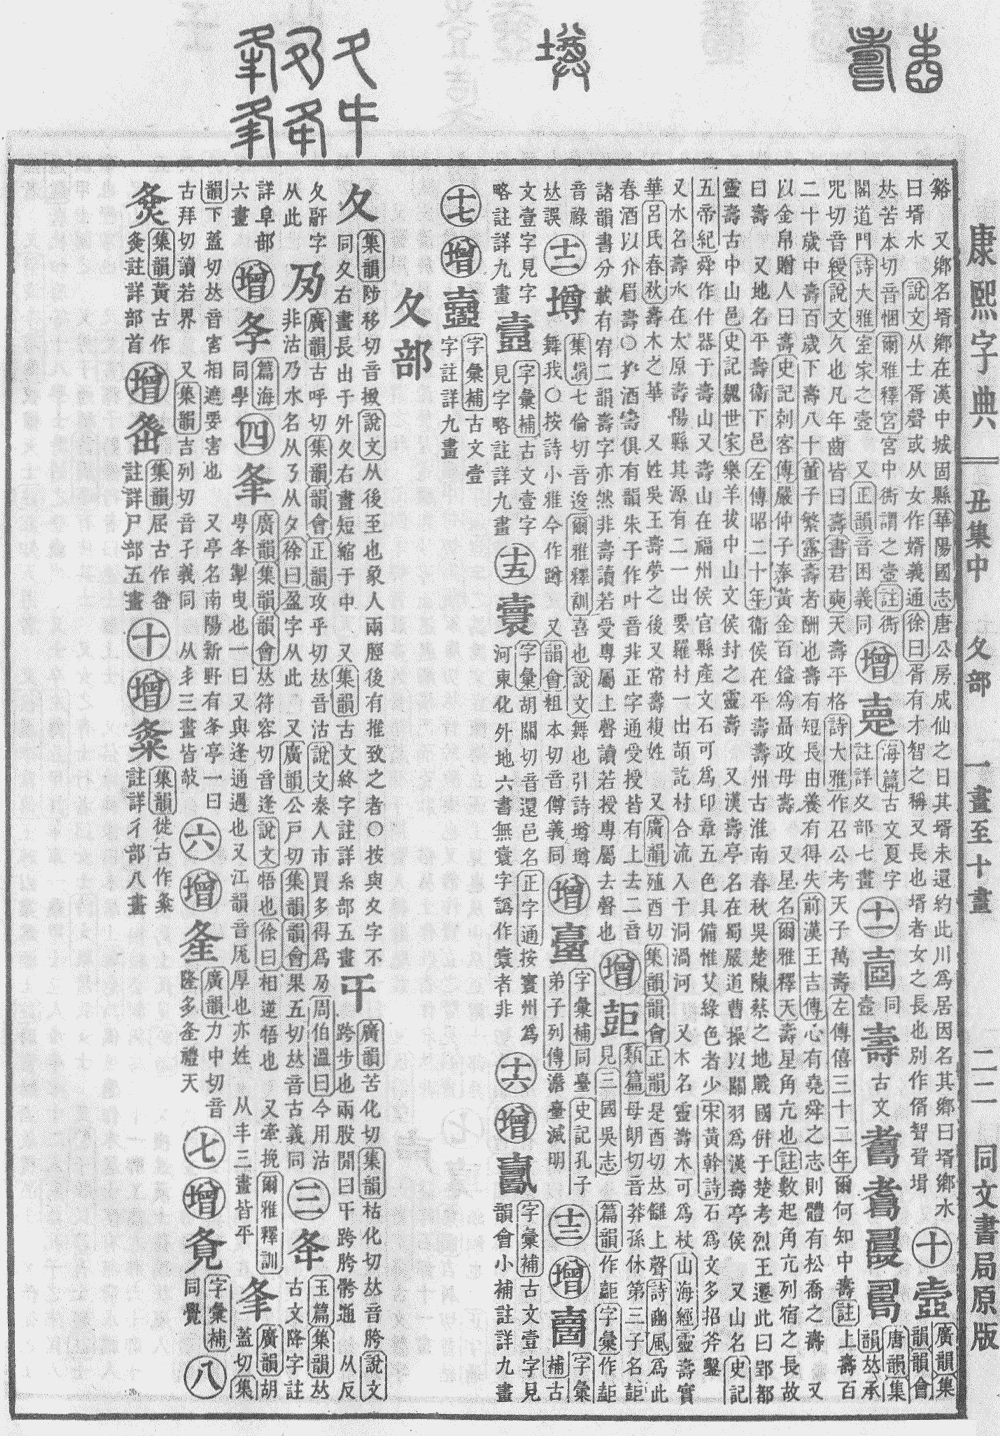 康熙字典 丑集中 夂部 一畫至十畫 二二一 同文書局原版
谿 又鄉名壻鄉在漢中城固縣華陽國志唐公房成仙之日其壻未還約此川爲居因名其鄉曰壻鄉水
曰壻水 說文从士胥聲或从女作婿義通徐曰胥有才智之稱又長也壻者女之長也別作偦智聟壻 十 壼 廣韻集韻韻會
𠀤苦本切音悃爾雅釋宮宮中衖謂之壼註衖
閣道門詩大雅室家之壼 又正韻音困義同 增 海篇古文夏字註詳夊部七畫 十一 同壼 壽 古文 唐韻集韻𠀤承
咒切音綬說文久也凡年齒皆曰壽書君奭天壽平格詩大雅作召公考天子萬壽左傳僖三十二年爾何知中壽註上壽百
二十歲中壽百歲下壽八十董子繁露壽者酬也壽有短長由養有得失前漢王吉傳心有堯舜之志則體有松喬之壽 又
以金帛贈人曰壽史記刺客傳嚴仲子奉黃金百鎰爲聶政母壽 又星名爾雅釋天壽星角亢也註數起角亢列宿之長故
曰壽 又地名平壽衞下邑左傳昭二十年衞侯在平壽壽州古淮南春秋吳楚陳蔡之地戰國併于楚考烈王遷此曰郢都
靈壽古中山邑史記魏世家樂羊拔中山文侯封之靈壽 又漢壽亭名在蜀嚴道曹操以關羽爲漢壽亭侯 又山名史記
五帝紀舜作什器于壽山又壽山在福州侯官縣產文石可爲印章五色具備惟艾綠色者少宋黃幹詩石爲文多招斧鑿
又水名壽水在太原壽陽縣其源有二一出要羅村一出頡訖村合流入于洞渦河 又木名靈壽木可爲杖山海經靈壽實
華呂氏春秋壽木之華 又姓吳王壽夢之後又常壽複姓 又廣韻殖酉切集韻韻會正韻是酉切𠀤讎上聲詩豳風爲此
春酒以介眉壽○按酒壽俱有韻朱子作叶音非正字通受授皆有上去二音
諸韻書分載有宥二韻壽字亦然非壽讀若受專屬上聲讀若授專屬去聲也 增 類篇母朗切音莽孫休第三子名
見三國吳志 篇韻作 字彙作
音祿𠀤誤 十二 壿 集韻七倫切音逡爾雅釋訓喜也說文舞也引詩壿壿舞我○按詩小雅今作蹲 又韻會粗本切音僔義同 增 臺 字彙補同臺史記孔子弟子列傳澹臺滅明 十三 增 字彙補古
文壹字見字略註詳九畫 壹 字彙補古文壹字見字略註詳九畫 十五 字彙胡關切音還邑名河東化外地六書無 字譌作寰者非 正字通按賨州爲 十六 增 字彙補古文壹字見韻會小補註詳九畫
十七 增 字彙補古文壹字註詳九畫
夂部
夂 集韻陟移切音㨖說文从後至也象人兩脛後有推致之者○按與夊字不
同夂右畫長出于外夊右畫短縮于中 又集韻古文終字註詳糸部五畫 㐄 廣韻苦化切集韻枯化切𠀤音胯說文
跨步也兩股閒曰㐄跨胯髈通 从反夂辭字从此 夃 廣韻古呼切集韻韻會正韻攻乎切𠀤音沽說文秦人市買多得爲夃周伯溫曰今用沽
非沽乃水名从乃从夊徐曰盈字从此 又廣韻公戸切集韻韻會果五切𠀤音古義同 三 夅 玉篇集韻𠀤古文降字註詳阜部
六畫 增 夆 篇海同學 四 夆 廣韻集韻韻會𠀤符容切音逢說文悟也徐曰相逆悟也 又牽挽爾雅釋訓
甹夆掣曳也一曰又與逢通遇也又江韻音厖厚也亦姓 从丰三畫皆平 夆 廣韻胡蓋切集
韻下蓋切𠀤音害相遮要害也 又亭名南陽新野有夆亭一曰
古拜切讀若界 又集韻吉列切音孑義同 从丯三畫皆攲 六 增 夅 廣韻力中切音隆多夅禮天 七 增 字彙補同覺 八
夋 集韻黃古作夋註詳部首 增 集韻屈古作 註詳尸部五畫 十 增 集韻徙古作 註詳彳部八畫